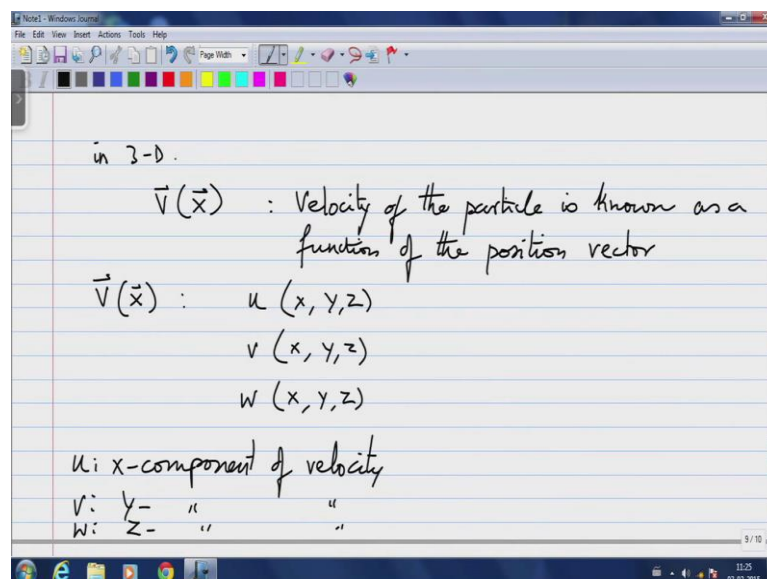 Note1 - Windows Journal
File Edit View Insert Actions Tools Help
Page Width
B I
in 3-D.
V⃗(x⃗) : Velocity of the particle is known as a
function of the position vector
V⃗(x⃗) : u (x, y, z)
v (x, y, z)
w (x, y, z)
u: x-component of velocity
v: y- " "
w: z- " "
9 / 10
11:25